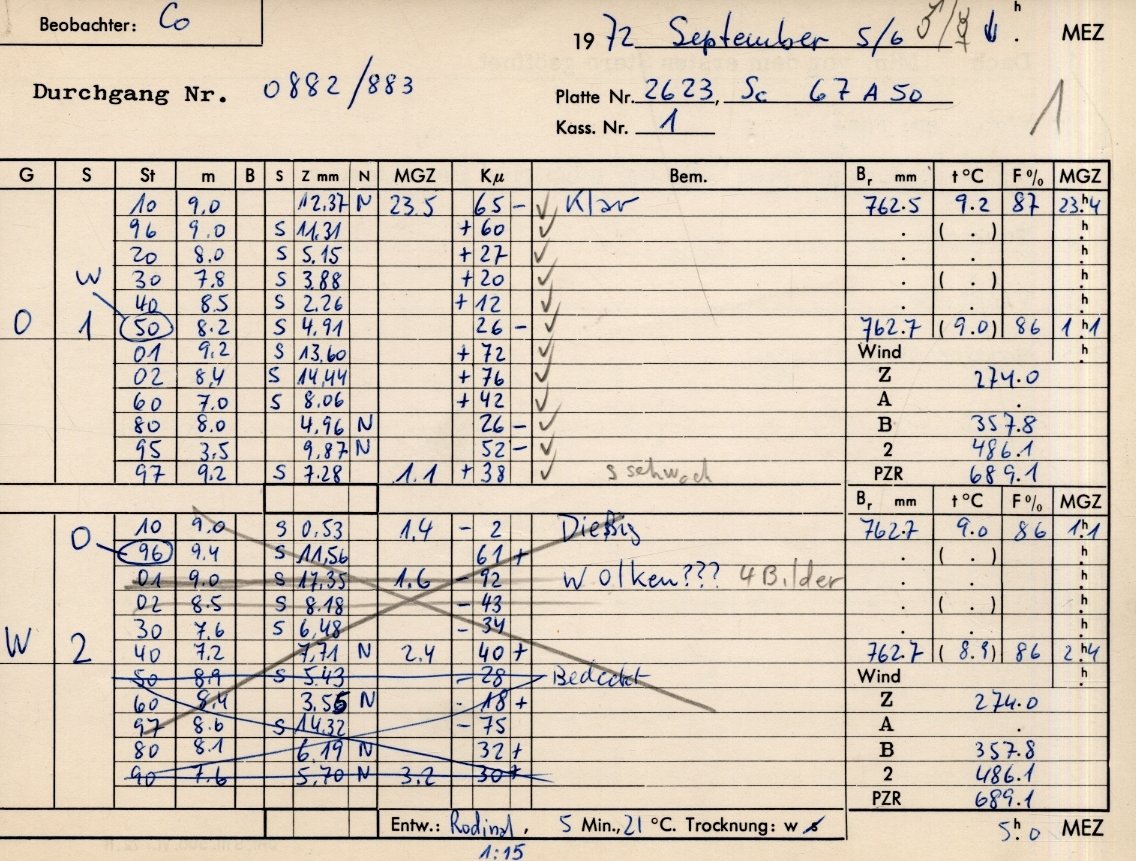 Beobachter: Co
1972 September 5/6 h MEZ
Durchgang Nr. 0882/883
Platte Nr. 2623, Sc 67 A 50
Kass. Nr. 1
1
G S St m B S Z mm N MGZ Kμ Bem. Br mm t °C F % MGZ
10 9.0 12.37 N 23.5 65 - ✓ Klar 762.5 9.2 87 23h.4
96 9.0 S 11.31 + 60 ✓ . ( . ) h.
20 8.0 S 5.15 + 27 ✓ . . h.
W 30 7.8 S 3.88 + 20 ✓ . ( . ) h.
40 8.5 S 2.26 + 12 ✓ . . h.
O 1 50 8.2 S 4.91 26 - ✓ 762.7 (9.0) 86 1h.1
01 9.2 S 13.60 + 72 ✓ Wind h
02 8.4 S 14.44 + 76 ✓ Z 274.0
60 7.0 S 8.06 + 42 ✓ A .
80 8.0 4.96 N 26 - ✓ B 357.8
95 3.5 9.87 N 52 - ✓ 2 486.1
97 9.2 S 7.28 1.1 + 38 ✓ s schwach PZR 689.1
Br mm t °C F % MGZ
10 9.0 S 0.53 1.4 - 2 Dießig 762.7 9.0 86 1h.1
O 96 9.4 S 11.56 61 + . ( . ) h.
01 9.0 S 17.35 1.6 - 92 Wolken??? 4 Bilder . . h.
02 8.5 S 8.18 - 43 . ( . ) h.
30 7.6 S 6.48 - 34 . . h.
W 2 40 7.2 7.71 N 2.4 40 + 762.7 (8.9) 86 2h.4
50 8.9 S 5.43 - 28 Bedeckt Wind h
60 8.4 3.55 N 18 + Z 274.0
97 8.6 S 14.32 - 75 A .
80 8.1 6.19 N 32 + B 357.8
90 7.6 5.70 N 3.2 30 + 2 486.1
PZR 689.1
Entw.: Rodinal, 5 Min., 21 °C. Trocknung: w s 5h.0 MEZ
1:15